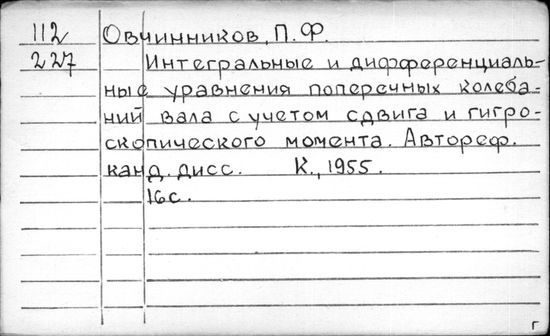 112 Овчинников, П. Ф.
227 Интегральные и дифференциаль-
ные уравнения поперечных колеба-
ний вала с учетом сдвига и гигро-
скопического момента. Автореф.
канд. дисс. К., 1955.
16 с.
г